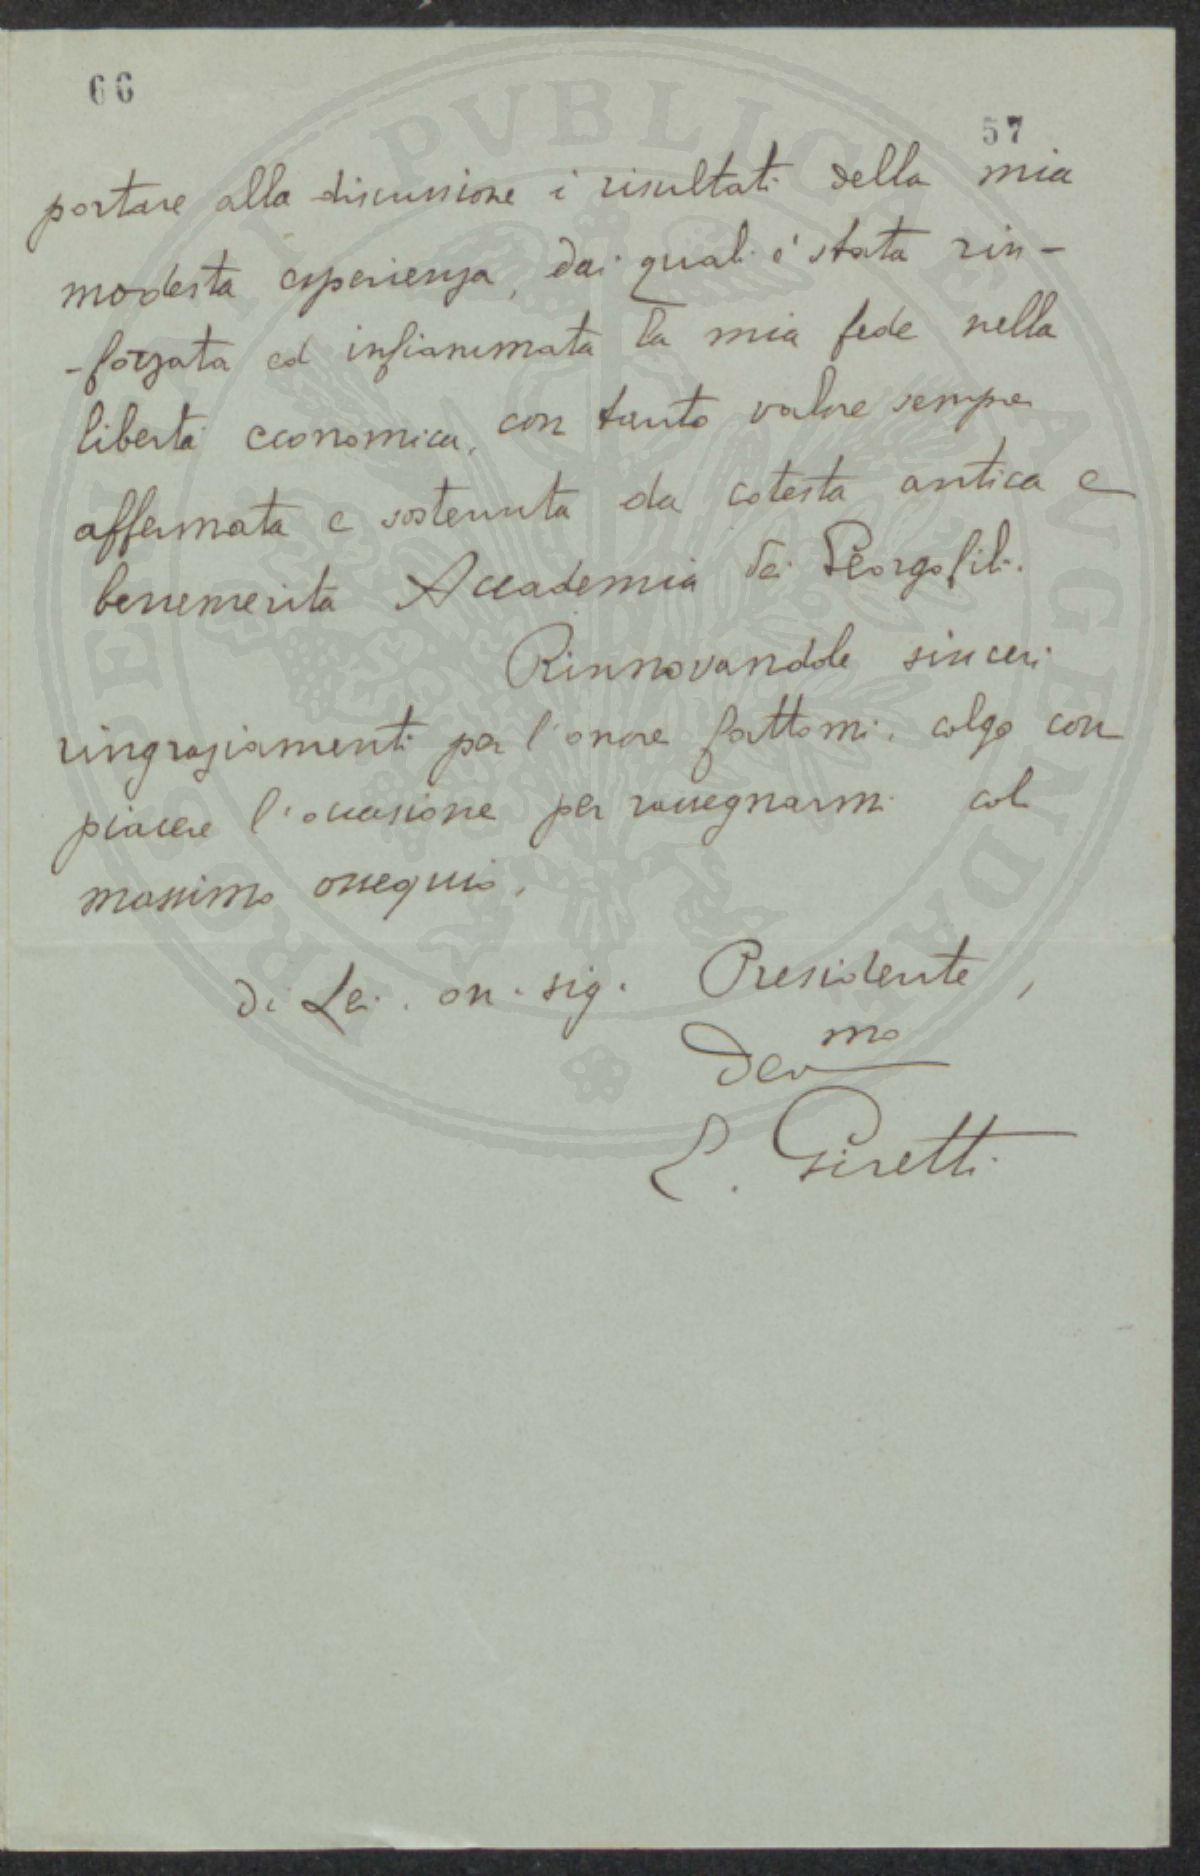 66
57
portare alla discussione i risultati della mia
modesta esperienza, dai quali è stata rin-
-forzata ed infiammata la mia fede nella
libertà economica, con tanto valore sempre
affermata e sostenuta da cotesta antica e
benemerita Accademia dei Georgofili.
Rinnovandole sinceri
ringraziamenti per l'onore fattomi, colgo con
piacere l'occasione per rassegnarmi col
massimo ossequio,
di Lei, on. sig. Presidente,
dev mo
E. Giretti
PROSPERITATI PVBLICAE AVGENDAE